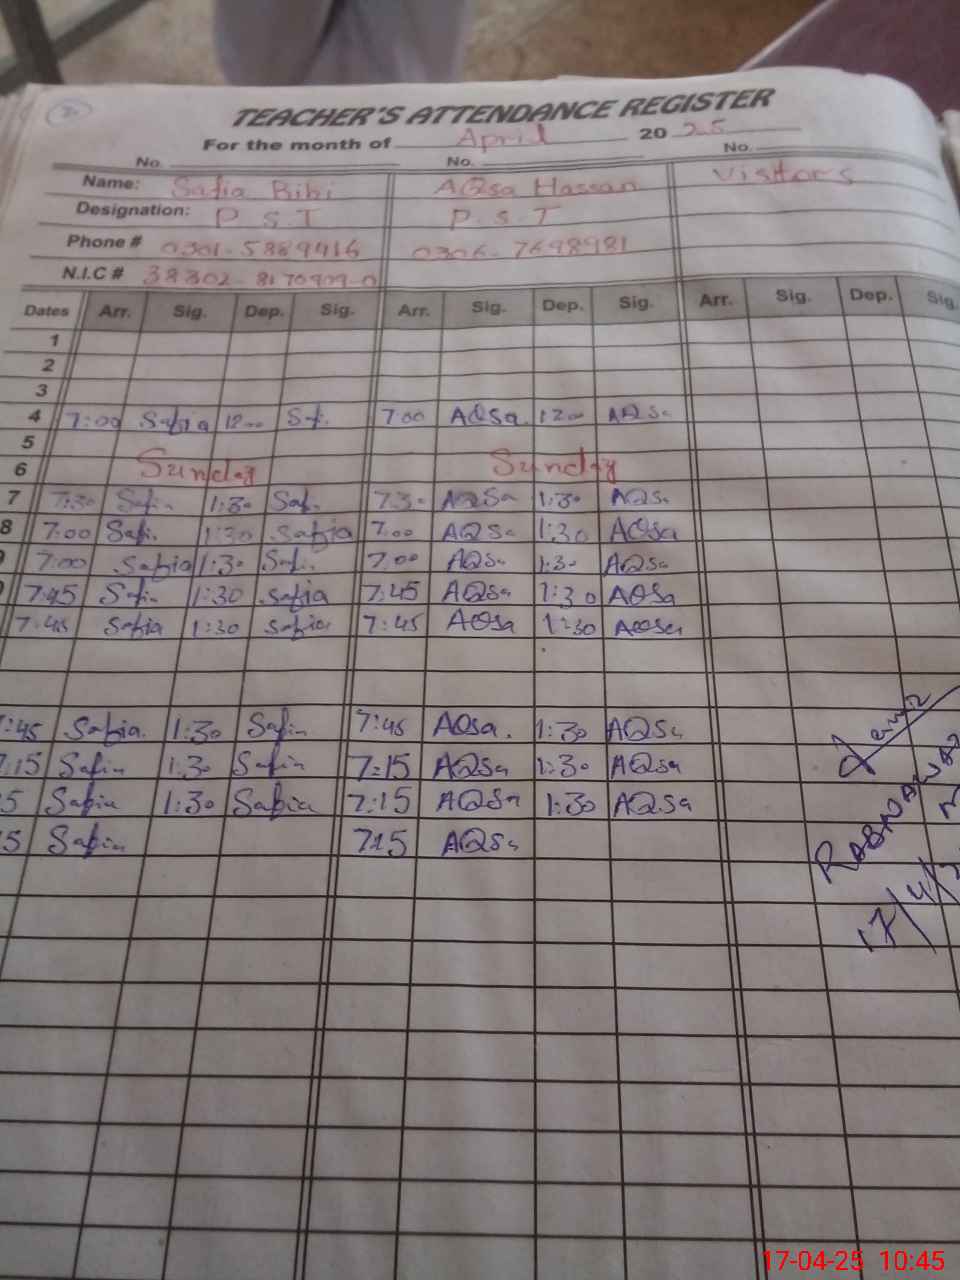 TEACHER'S ATTENDANCE REGISTER
For the month of April 2025
No. No. No.
Name: Safia Bibi AQsa Hassan Visitors
Designation: P S.T P.S.T
Phone # 0301-5889416 0306-7698981
N.I.C # 38302-8170909-0
Dates Arr. Sig. Dep. Sig. Arr. Sig. Dep. Sig. Arr. Sig. Dep. Sig.
1
2
3
4 7:00 Safia 12:00 Saf. 7:00 AQSa. 12:00 AQSa
5
6 Sunday Sunday
7 7:30 Safia 1:30 Saf. 7:30 AQSa 1:30 AQSa
8 7:00 Safi. 1:30 Safia 7:00 AQSa 1:30 AQSa
7:00 Safia 1:30 Saf. 7:00 AQSa 1:30 AQSa
7:45 Safia 1:30 Safia 7:45 AQSa 1:30 AQSa
7:45 Safia 1:30 Safia 7:45 AQSa 1:30 AQSa
:45 Safia. 1:30 Safia 7:45 AQsa. 1:30 AQSa
7:15 Safia 1:30 Safia 7:15 AQSa 1:30 AQSa
5 Safia 1:30 Safia 7:15 AQSa 1:30 AQSa
5 Safia 7:15 AQSa
RABNAWAZ
17/4/2
17-04-25 10:45